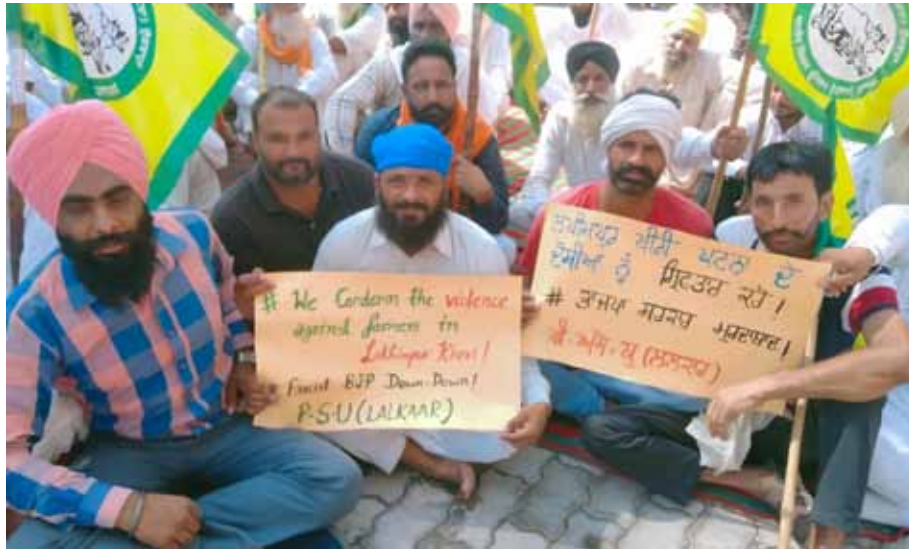 # We Condemn the violence
against farmers in
Lakhimpur Kheri!
# Fascist BJP Down-Down!
P.S.U (LALKAAR)
ਲਖੀਮਪੁਰ ਖੀਰੀ ਘਟਨਾ ਦੇ
ਦੋਸ਼ੀਆਂ ਨੂੰ ਗ੍ਰਿਫਤਾਰ ਕਰੋ।
# ਭਾਜਪਾ ਸਰਕਾਰ ਮੁਰਦਾਬਾਦ।
ਪੀ.ਐਸ.ਯੂ (ਲਲਕਾਰ)